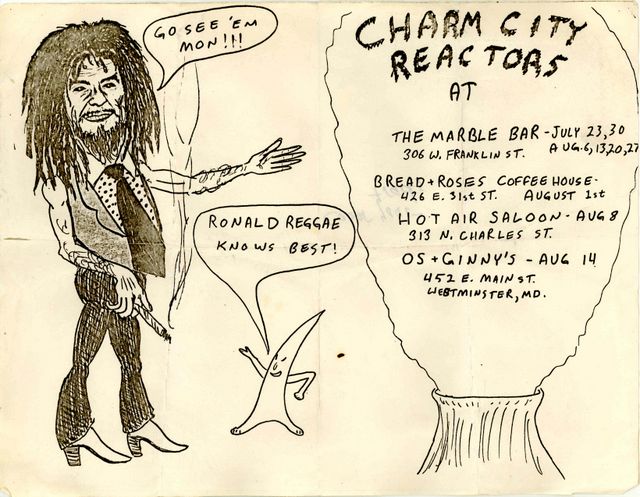 GO SEE 'EM
MON!!!
RONALD REGGAE
KNOWS BEST!
CHARM CITY
REACTORS
AT
THE MARBLE BAR - JULY 23, 30
306 W. FRANKLIN ST. AUG. 6, 13, 20, 27
BREAD + ROSES COFFEE HOUSE -
426 E. 31st ST. AUGUST 1st
HOT AIR SALOON - AUG 8
313 N. CHARLES ST.
OS + GINNY'S - AUG 14
452 E. MAIN ST.
WESTMINSTER, MD.